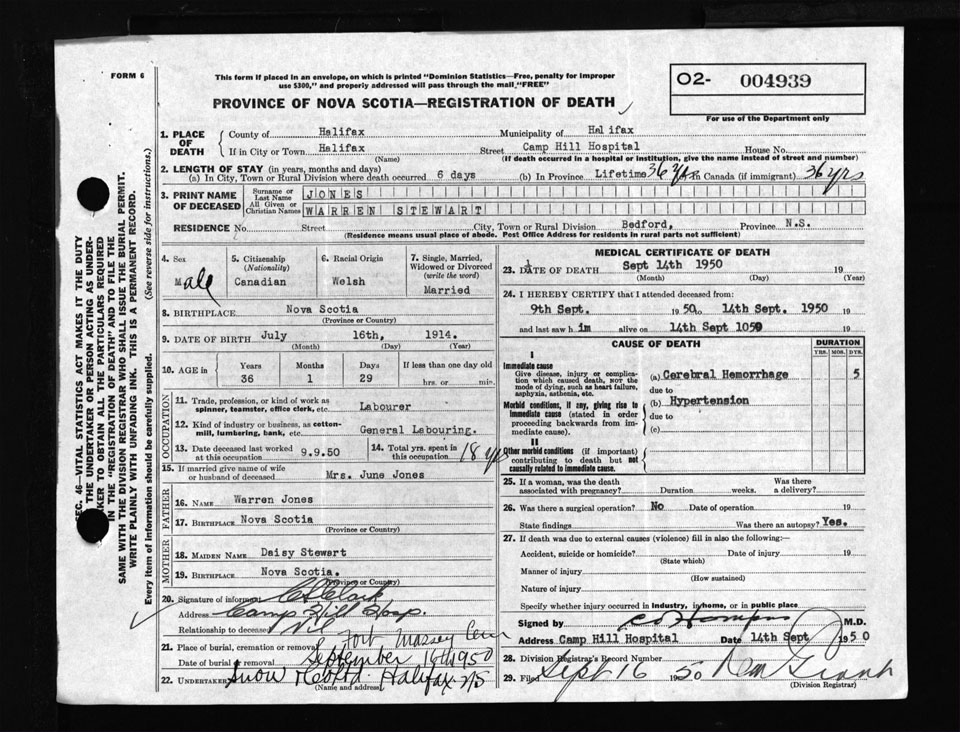 FORM 6
This form if placed in an envelope, on which is printed "Dominion Statistics—Free, penalty for improper
use $300," and properly addressed will pass through the mail "FREE"
PROVINCE OF NOVA SCOTIA—REGISTRATION OF DEATH
02- 004939
For use of the Department only
SEC. 46—VITAL STATISTICS ACT MAKES IT THE DUTY
THE UNDERTAKER OR PERSON ACTING AS UNDER-
TAKER TO OBTAIN ALL THE PARTICULARS REQUIRED
IN THE "REGISTRATION OF DEATH" AND TO FILE THE
SAME WITH THE DIVISION REGISTRAR WHO SHALL ISSUE THE BURIAL PERMIT.
WRITE PLAINLY WITH UNFADING INK. THIS IS A PERMANENT RECORD.
Every item of information should be carefully supplied. (See reverse side for instructions.)
1. PLACE OF DEATH
County of Halifax Municipality of Halifax
If in City or Town Halifax Street Camp Hill Hospital House No.
(Name) (If death occurred in a hospital or institution, give the name instead of street and number)
2. LENGTH OF STAY (in years, months and days)
(a) In City, Town or Rural Division where death occurred 6 days (b) In Province Lifetime 36 yrs In Canada (if immigrant) 36 yrs
3. PRINT NAME OF DECEASED
Surname or Last Name JONES
All Given or Christian Names WARREN STEWART
RESIDENCE No. Street City, Town or Rural Division Bedford, Province N.S.
(Residence means usual place of abode. Post Office Address for residents in rural parts not sufficient)
4. Sex Male
5. Citizenship (Nationality) Canadian
6. Racial Origin Welsh
7. Single, Married, Widowed or Divorced (write the word) Married
8. BIRTHPLACE Nova Scotia
(Province or Country)
9. DATE OF BIRTH July 16th, 1914.
(Month) (Day) (Year)
10. AGE in Years 36 Months 1 Days 29 If less than one day old hrs. or min.
OCCUPATION
11. Trade, profession, or kind of work as
spinner, teamster, office clerk, etc. Labourer
12. Kind of industry or business, as cotton-
mill, lumbering, bank, etc. General Labouring.
13. Date deceased last worked
at this occupation 9.9.50
14. Total yrs. spent in
this occupation 18 yrs
15. If married give name of wife
or husband of deceased Mrs. June Jones
FATHER
16. NAME Warren Jones
17. BIRTHPLACE Nova Scotia
(Province or Country)
MOTHER
18. MAIDEN NAME Daisy Stewart
19. BIRTHPLACE Nova Scotia.
(Province or Country)
20. Signature of informant Clark
Address Camp Hill Hosp.
Relationship to deceased Nil
21. Place of burial, cremation or removal Fort Massey Cem
Date of burial or removal September 16th 1950
22. UNDERTAKER Snow & Co Ltd. Halifax NS
(Name and address)
MEDICAL CERTIFICATE OF DEATH
23. DATE OF DEATH Sept 14th 1950 19
(Month) (Day) (Year)
24. I HEREBY CERTIFY that I attended deceased from:
9th Sept. 19 50 to 14th Sept. 1950 19
and last saw h im alive on 14th Sept 1050 19
CAUSE OF DEATH
DURATION
YRS. MOS. DYS.
I
Immediate cause
Give disease, injury or complica-
tion which caused death, NOT the
mode of dying, such as heart failure,
asphyxia, asthenia, etc.
(a) Cerebral Hemorrhage 5
due to
Morbid conditions, if any, giving rise to
immediate cause (stated in order
proceeding backwards from im-
mediate cause).
(b) Hypertension
due to
(c)
II
Other morbid conditions (if important)
contributing to death but not
causally related to immediate cause.
25. If a woman, was the death
associated with pregnancy? Duration weeks. Was there
a delivery?
26. Was there a surgical operation? No Date of operation 19
State findings Was there an autopsy? Yes.
27. If death was due to external causes (violence) fill in also the following:—
Accident, suicide or homicide? Date of injury 19
(State which)
Manner of injury
(How sustained)
Nature of injury
Specify whether injury occurred in industry, in home, or in public place
Signed by M.D.
Address Camp Hill Hospital Date 14th Sept 1950
28. Division Registrar's Record Number
29. Filed Sept 16 1950
(Division Registrar)